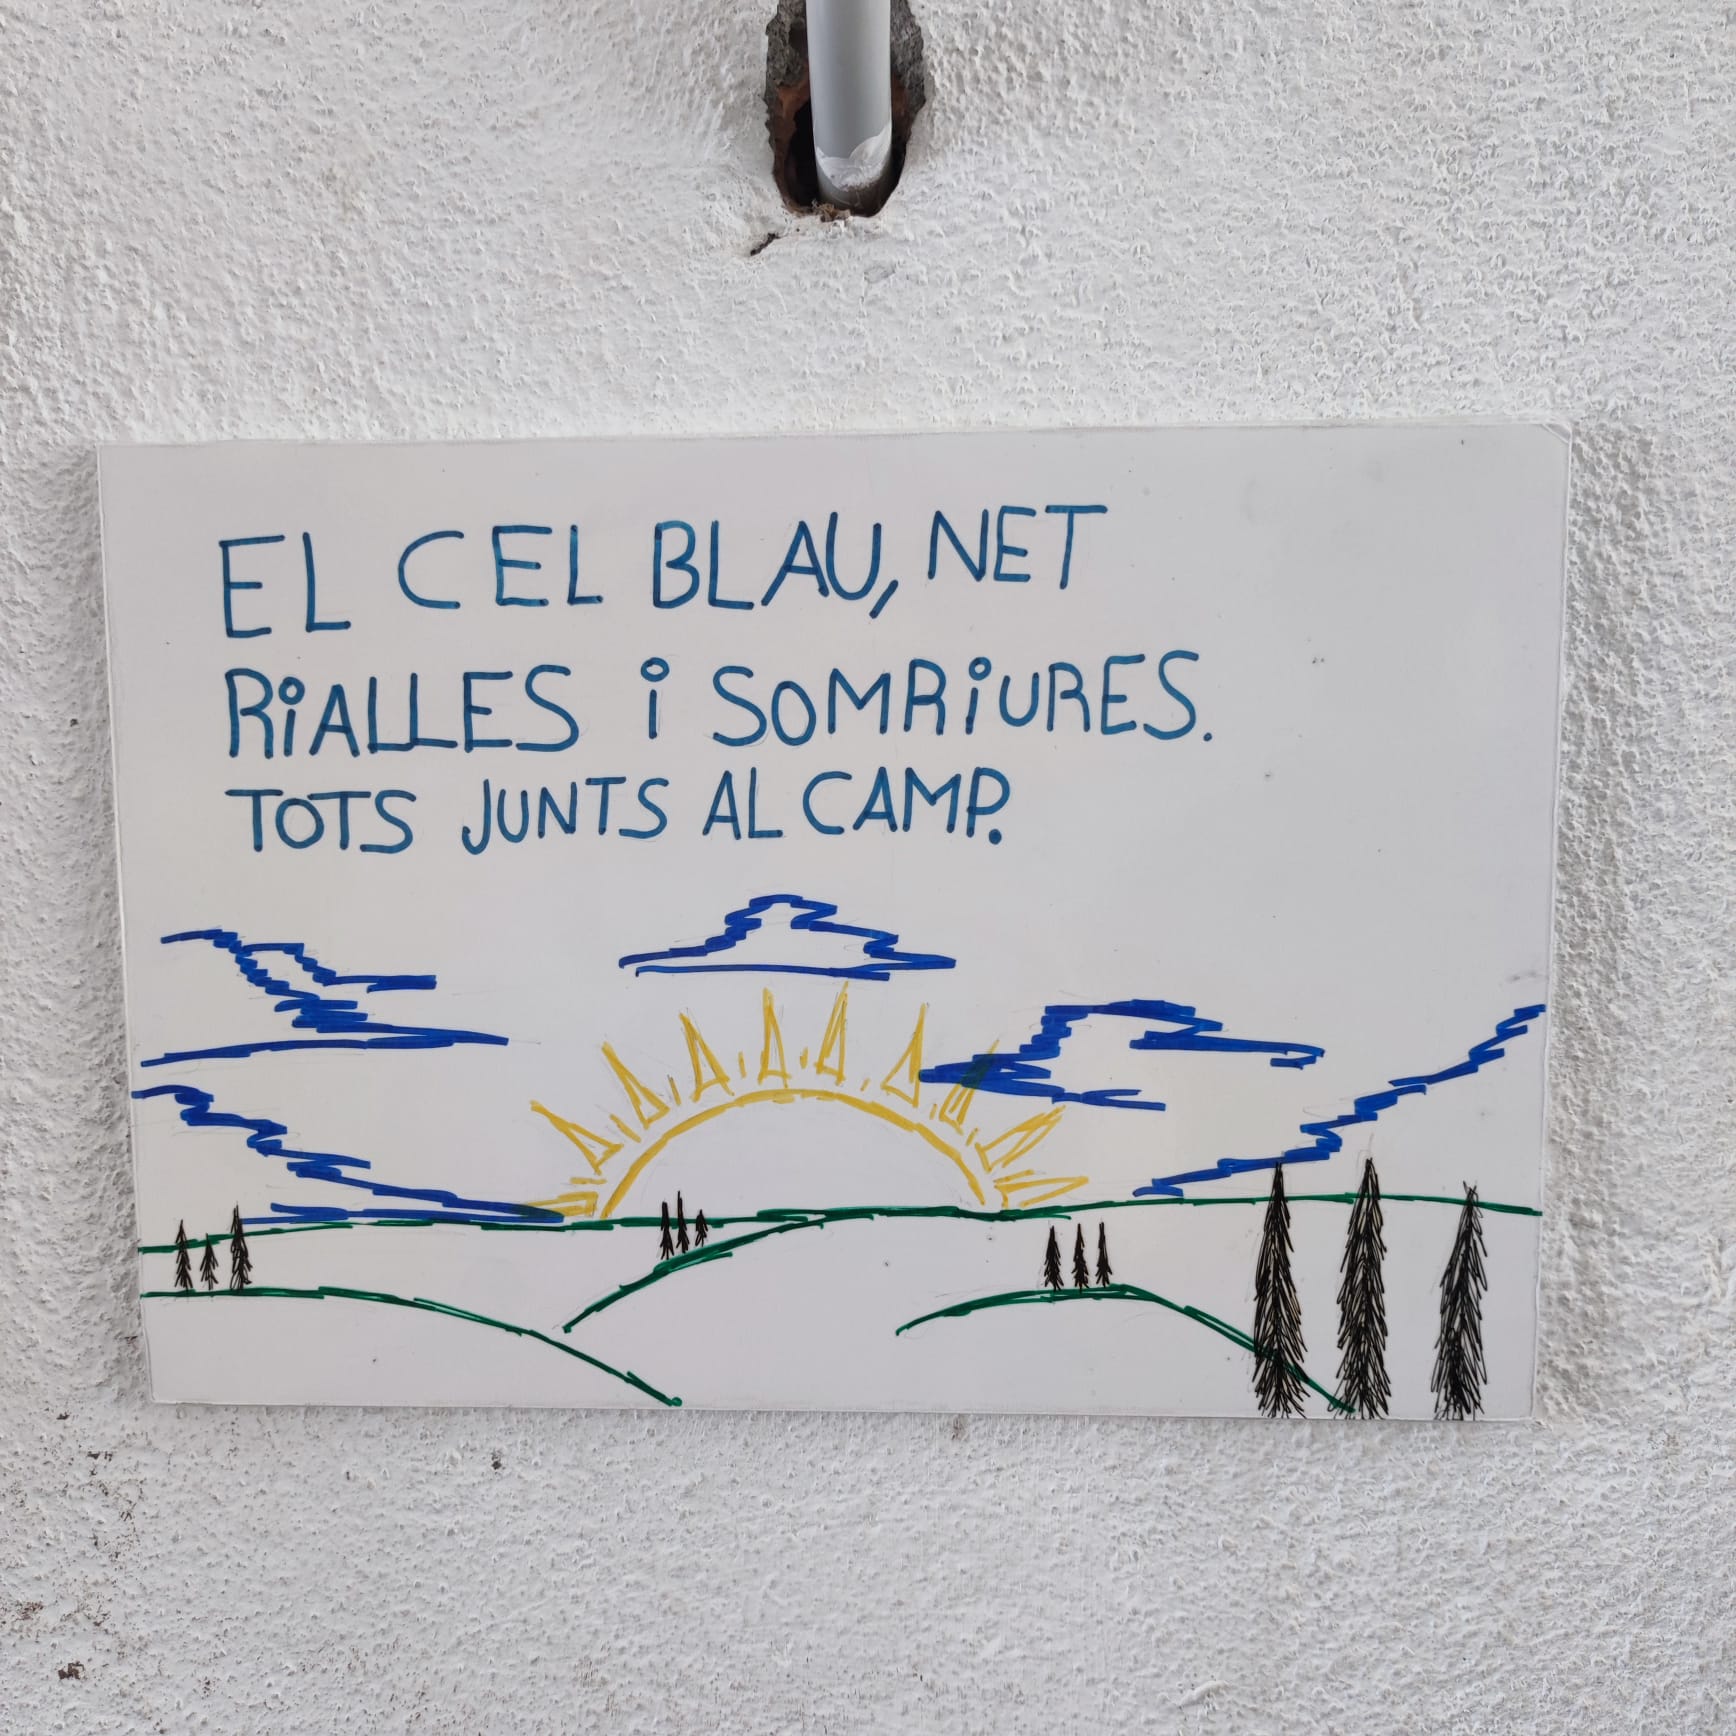 EL CEL BLAU, NET
RiALLES i SOMRiURES.
TOTS JUNTS AL CAMP.